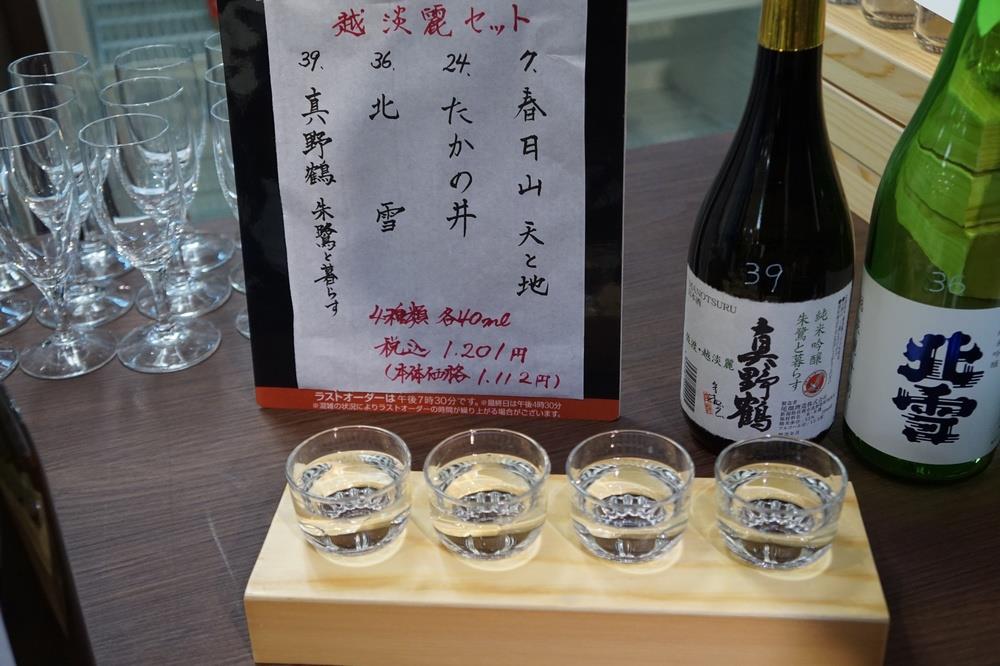 越淡麗セット
7. 春日山 天と地
24. たかの井
36. 北雪
39. 真野鶴 朱鷺と暮らす
4種類 各40ml
税込 1.201円
(本体価格 1.112円)
ラストオーダーは午後7時30分です。※最終日は午後4時30分
※混雑の状況によりラストオーダーの時間が繰り上がる場合がございます。
39
MANOTSURU
純米吟醸
朱鷺と暮らす
真野鶴
佐渡・越淡麗
36
北雪